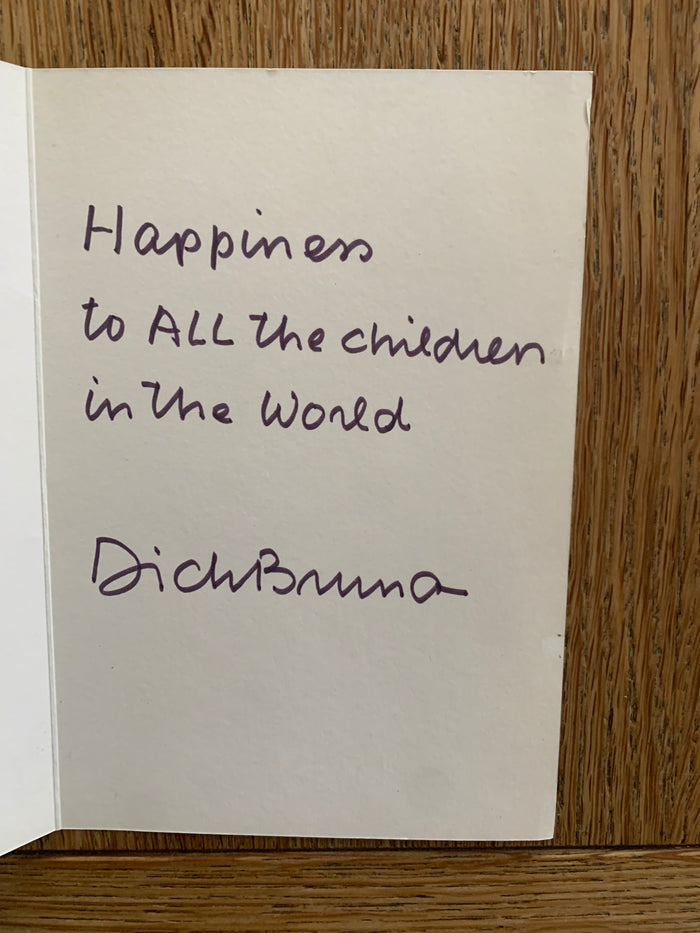 Happiness
to ALL the children
in the World
Dick Bruna